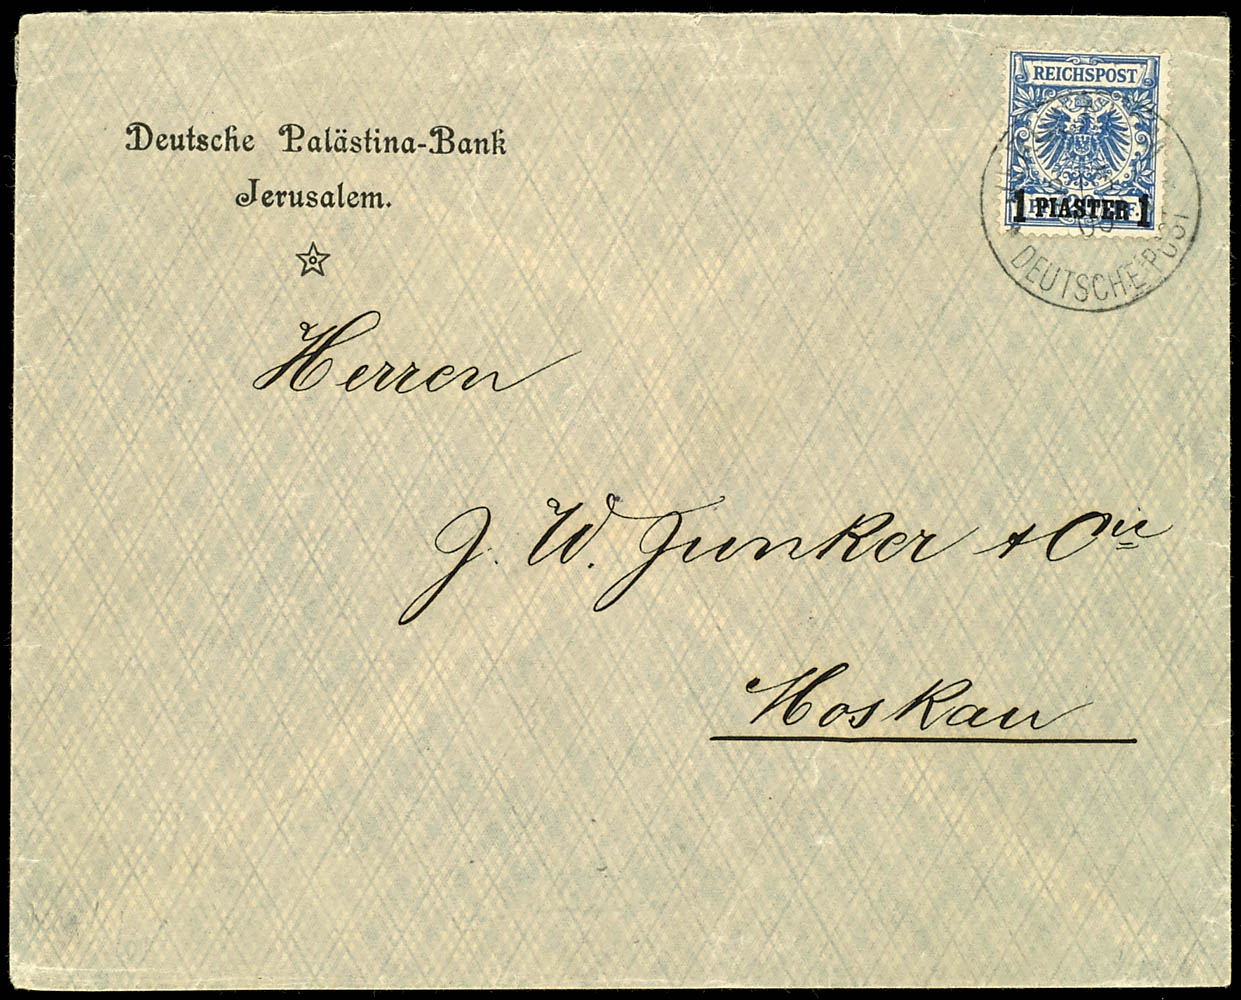 Deutsche Palästina-Bank
Jerusalem.
REICHSPOST
1 PIASTER 1
DEUTSCHE POST
Herren
J. W. Junker & Cie
Moskau